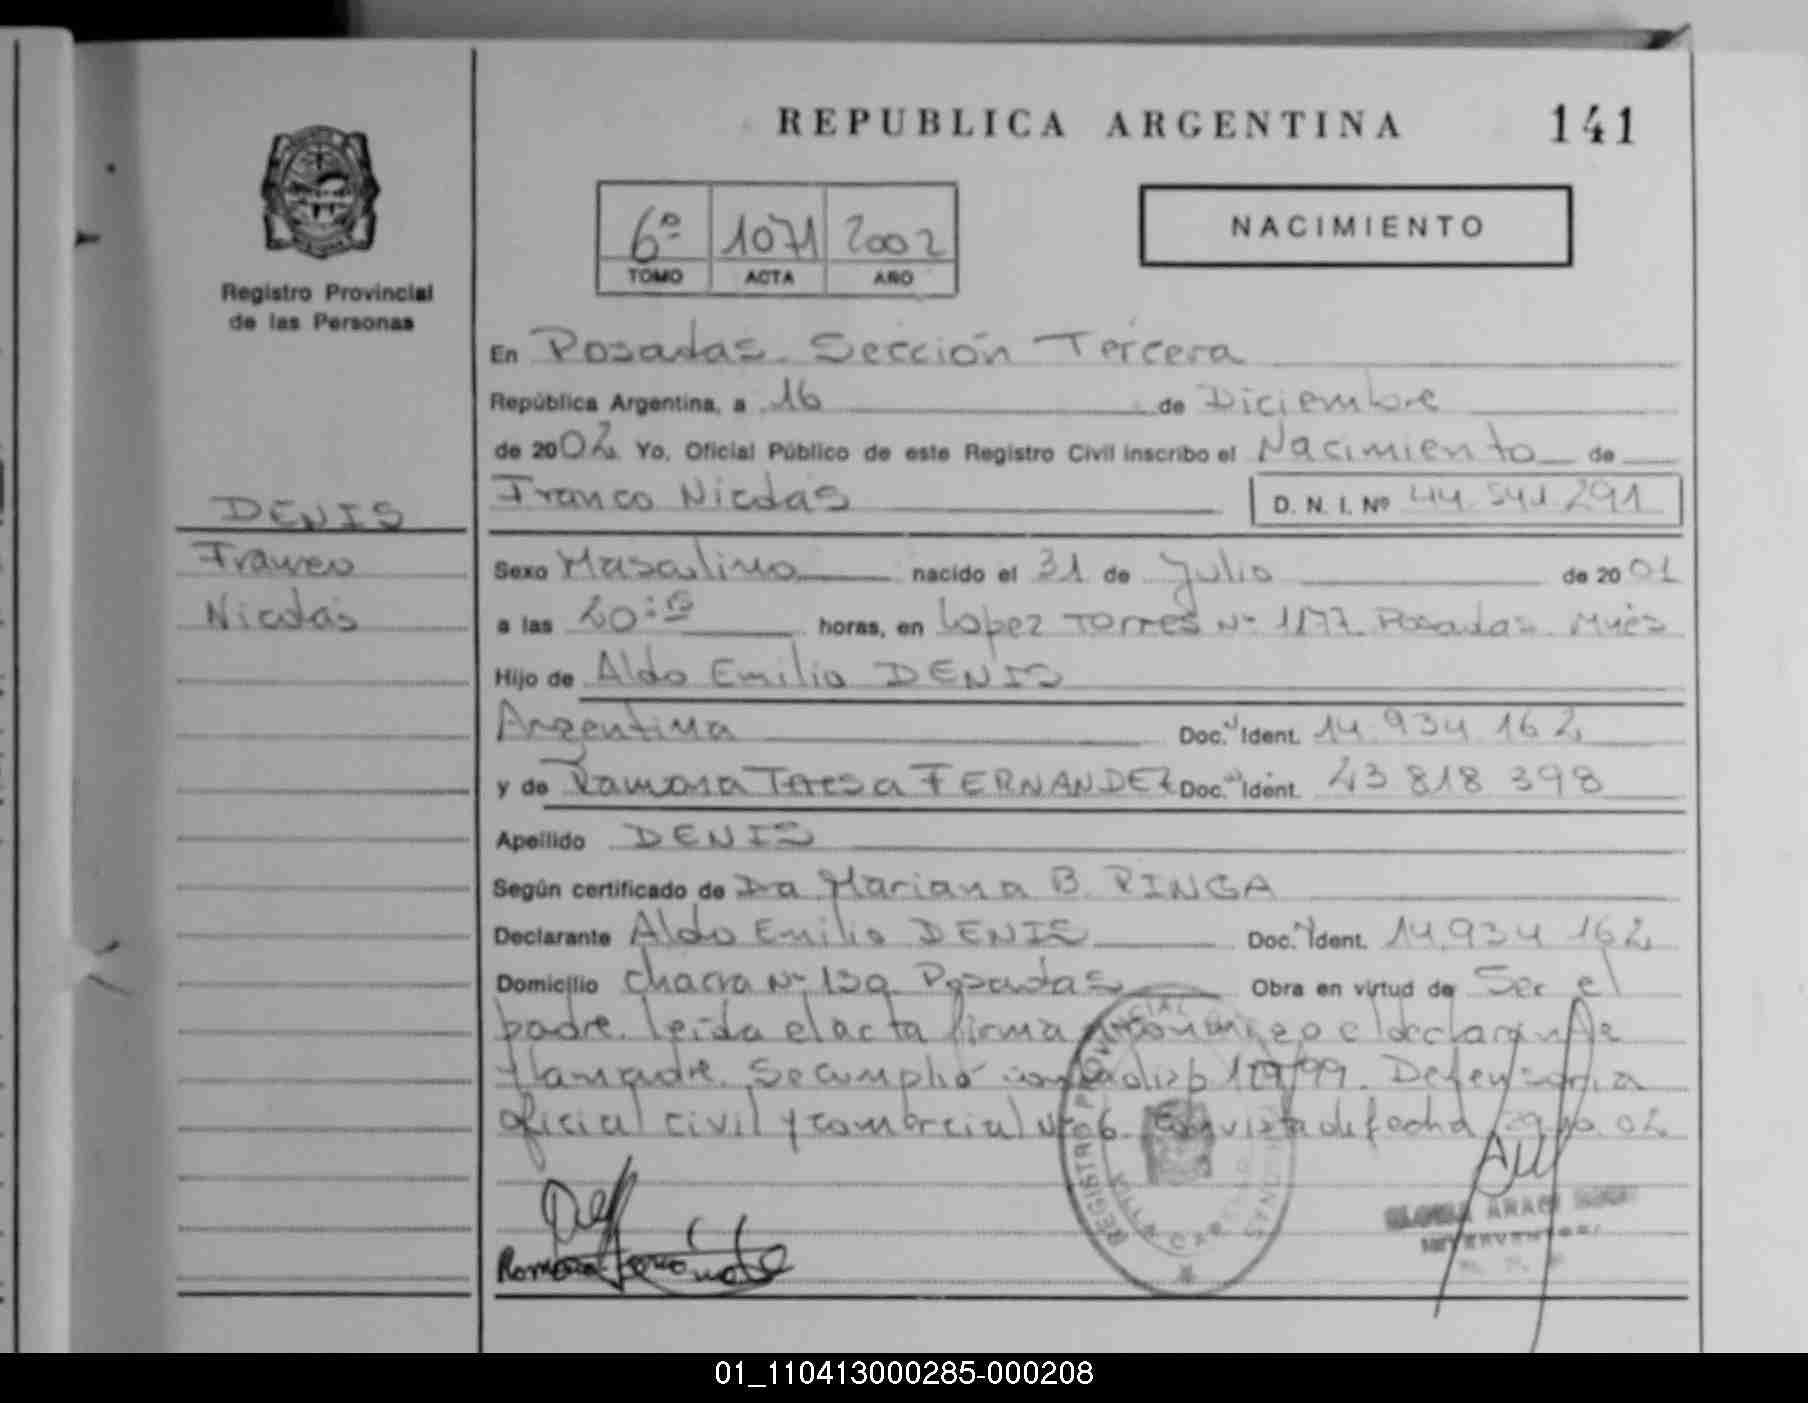 REPUBLICA ARGENTINA 141
6º 1071 2002
TOMO ACTA AÑO
NACIMIENTO
Registro Provincial
de las Personas
DENIS
Franco
Nicolás
En Posadas. Sección Tercera
República Argentina, a 16 de Diciembre
de 2002 Yo, Oficial Público de este Registro Civil inscribo el Nacimiento de
Franco Nicolás D. N. I. Nº 44.541.291
Sexo Masculino nacido el 31 de Julio de 2001
a las 20:15 horas, en Lopez Torres Nº 1177 Posadas. Mnes
Hijo de Aldo Emilio DENIS
Argentina Doc. Ident. 14.934.162
y de Ramona Teresa FERNANDEZ Doc. Ident. 23 818 398
Apellido DENIS
Según certificado de Dra Mariana B. PINGA
Declarante Aldo Emilio DENIS Doc. Ident. 14.934 162
Domicilio chacra Nº 139. Posadas Obra en virtud de Ser el
padre. leída el acta firma conmigo el declarante
y la madre. Se cumplió con la disp 119/99. Defensoria
oficial civil y comercial Nº 6. En vista de fecha 02
REGISTRO PROVINCIAL
VILLA CABELLO
Ramona
GLORIA
INTERVENTORA
01_110413000285-000208